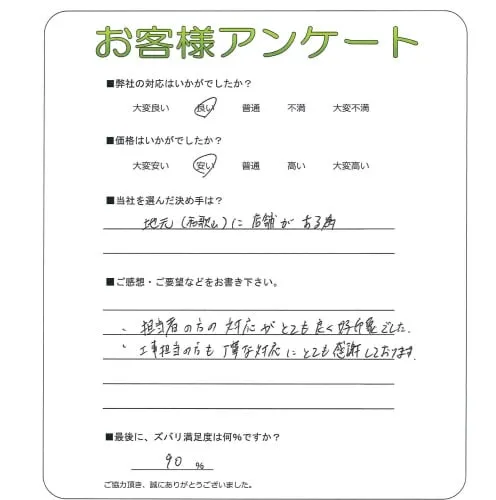 お客様アンケート
■弊社の対応はいかがでしたか？
大変良い 良い 普通 不満 大変不満
■価格はいかがでしたか？
大変安い 安い 普通 高い 大変高い
■当社を選んだ決め手は？
地元（和歌山）に店舗がある為
■ご感想・ご要望などをお書き下さい。
、担当者の方の対応がとても良く好印象でした。
・工事担当の方も丁寧な対応にとても感謝しております。
■最後に、ズバリ満足度は何％ですか？
90 %
ご協力頂き、誠にありがとうございました。